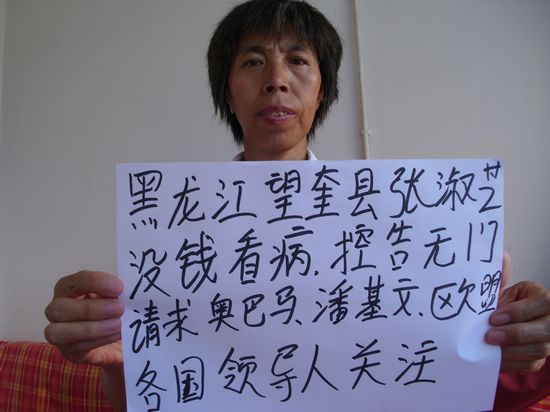 黑龙江望奎县张淑芝
没钱看病.控告无门
请求奥巴马、潘基文.欧盟
各国领导人关注